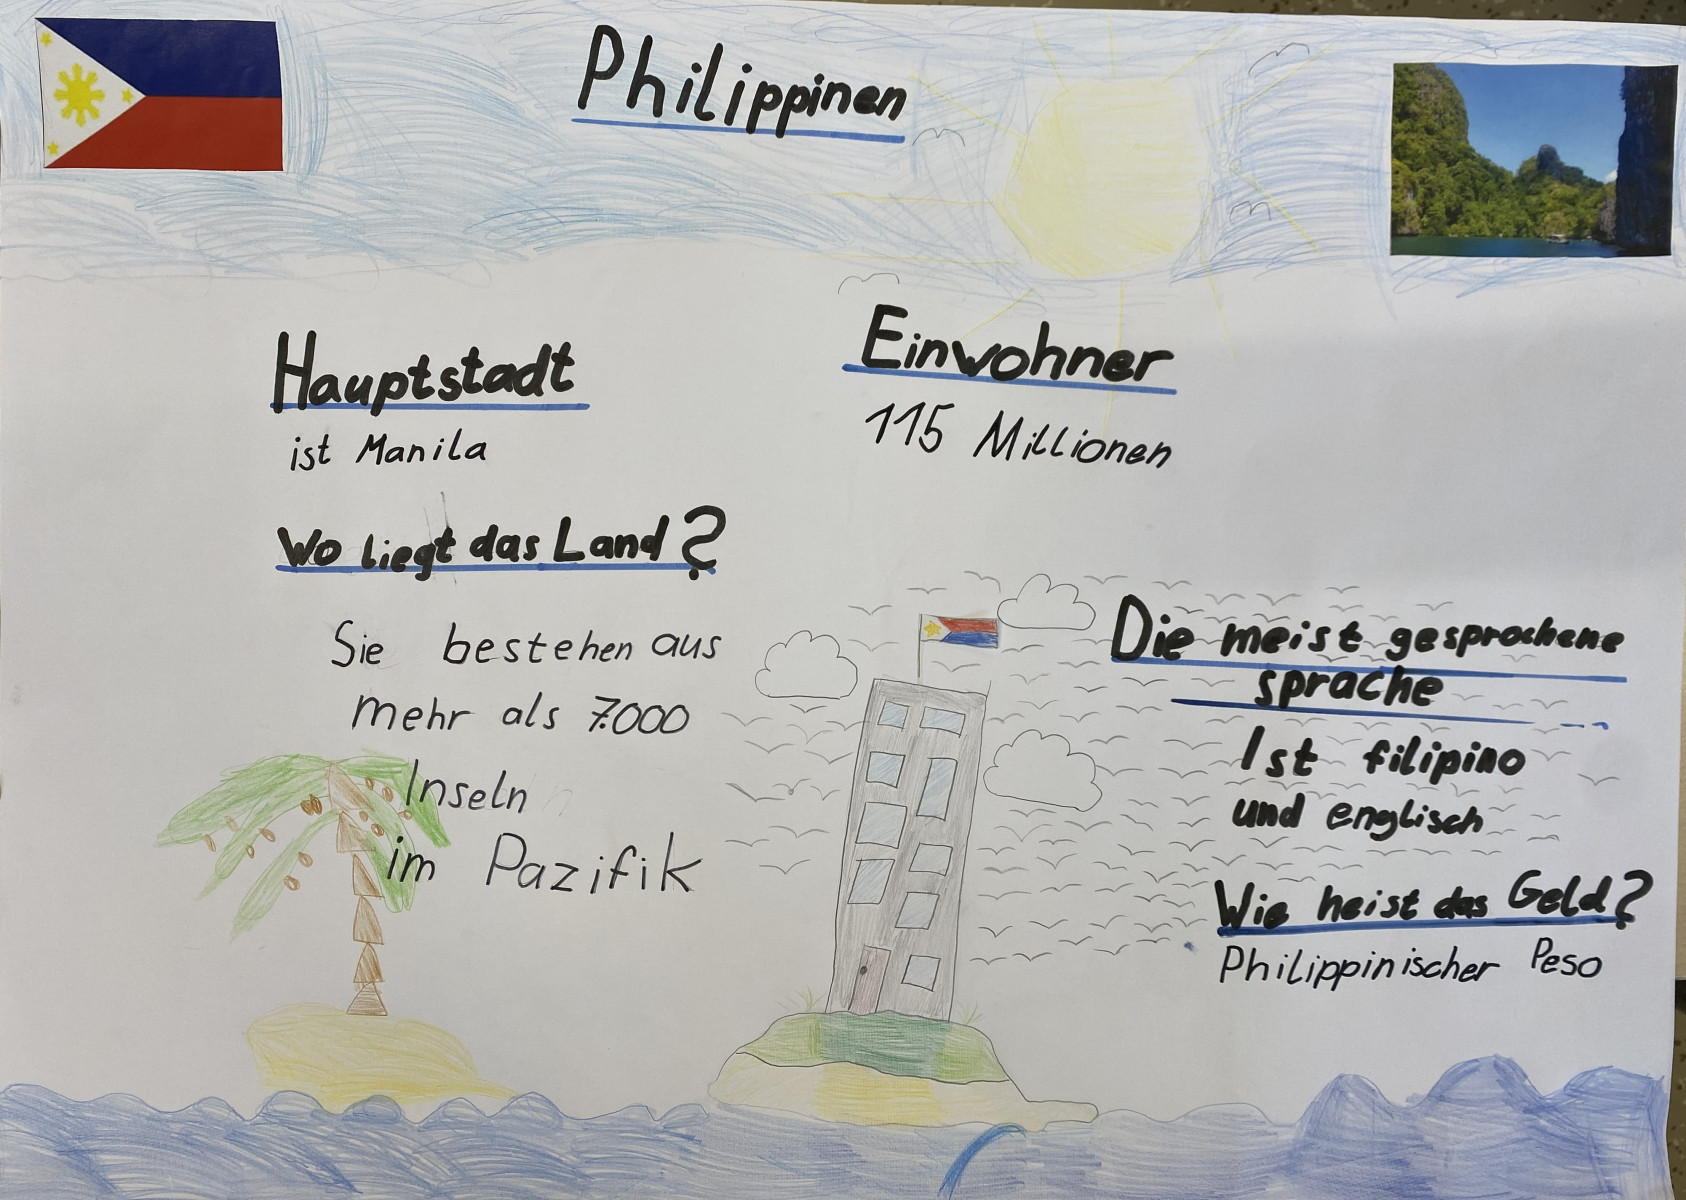 Philippinen
Hauptstadt
ist Manila
Einwohner
115 Millionen
Wo liegt das Land?
Sie bestehen aus
mehr als 7.000
Inseln
im Pazifik
Die meist gesprochene
sprache
Ist filipino
und englisch
Wie heist das Geld?
Philippinischer Peso